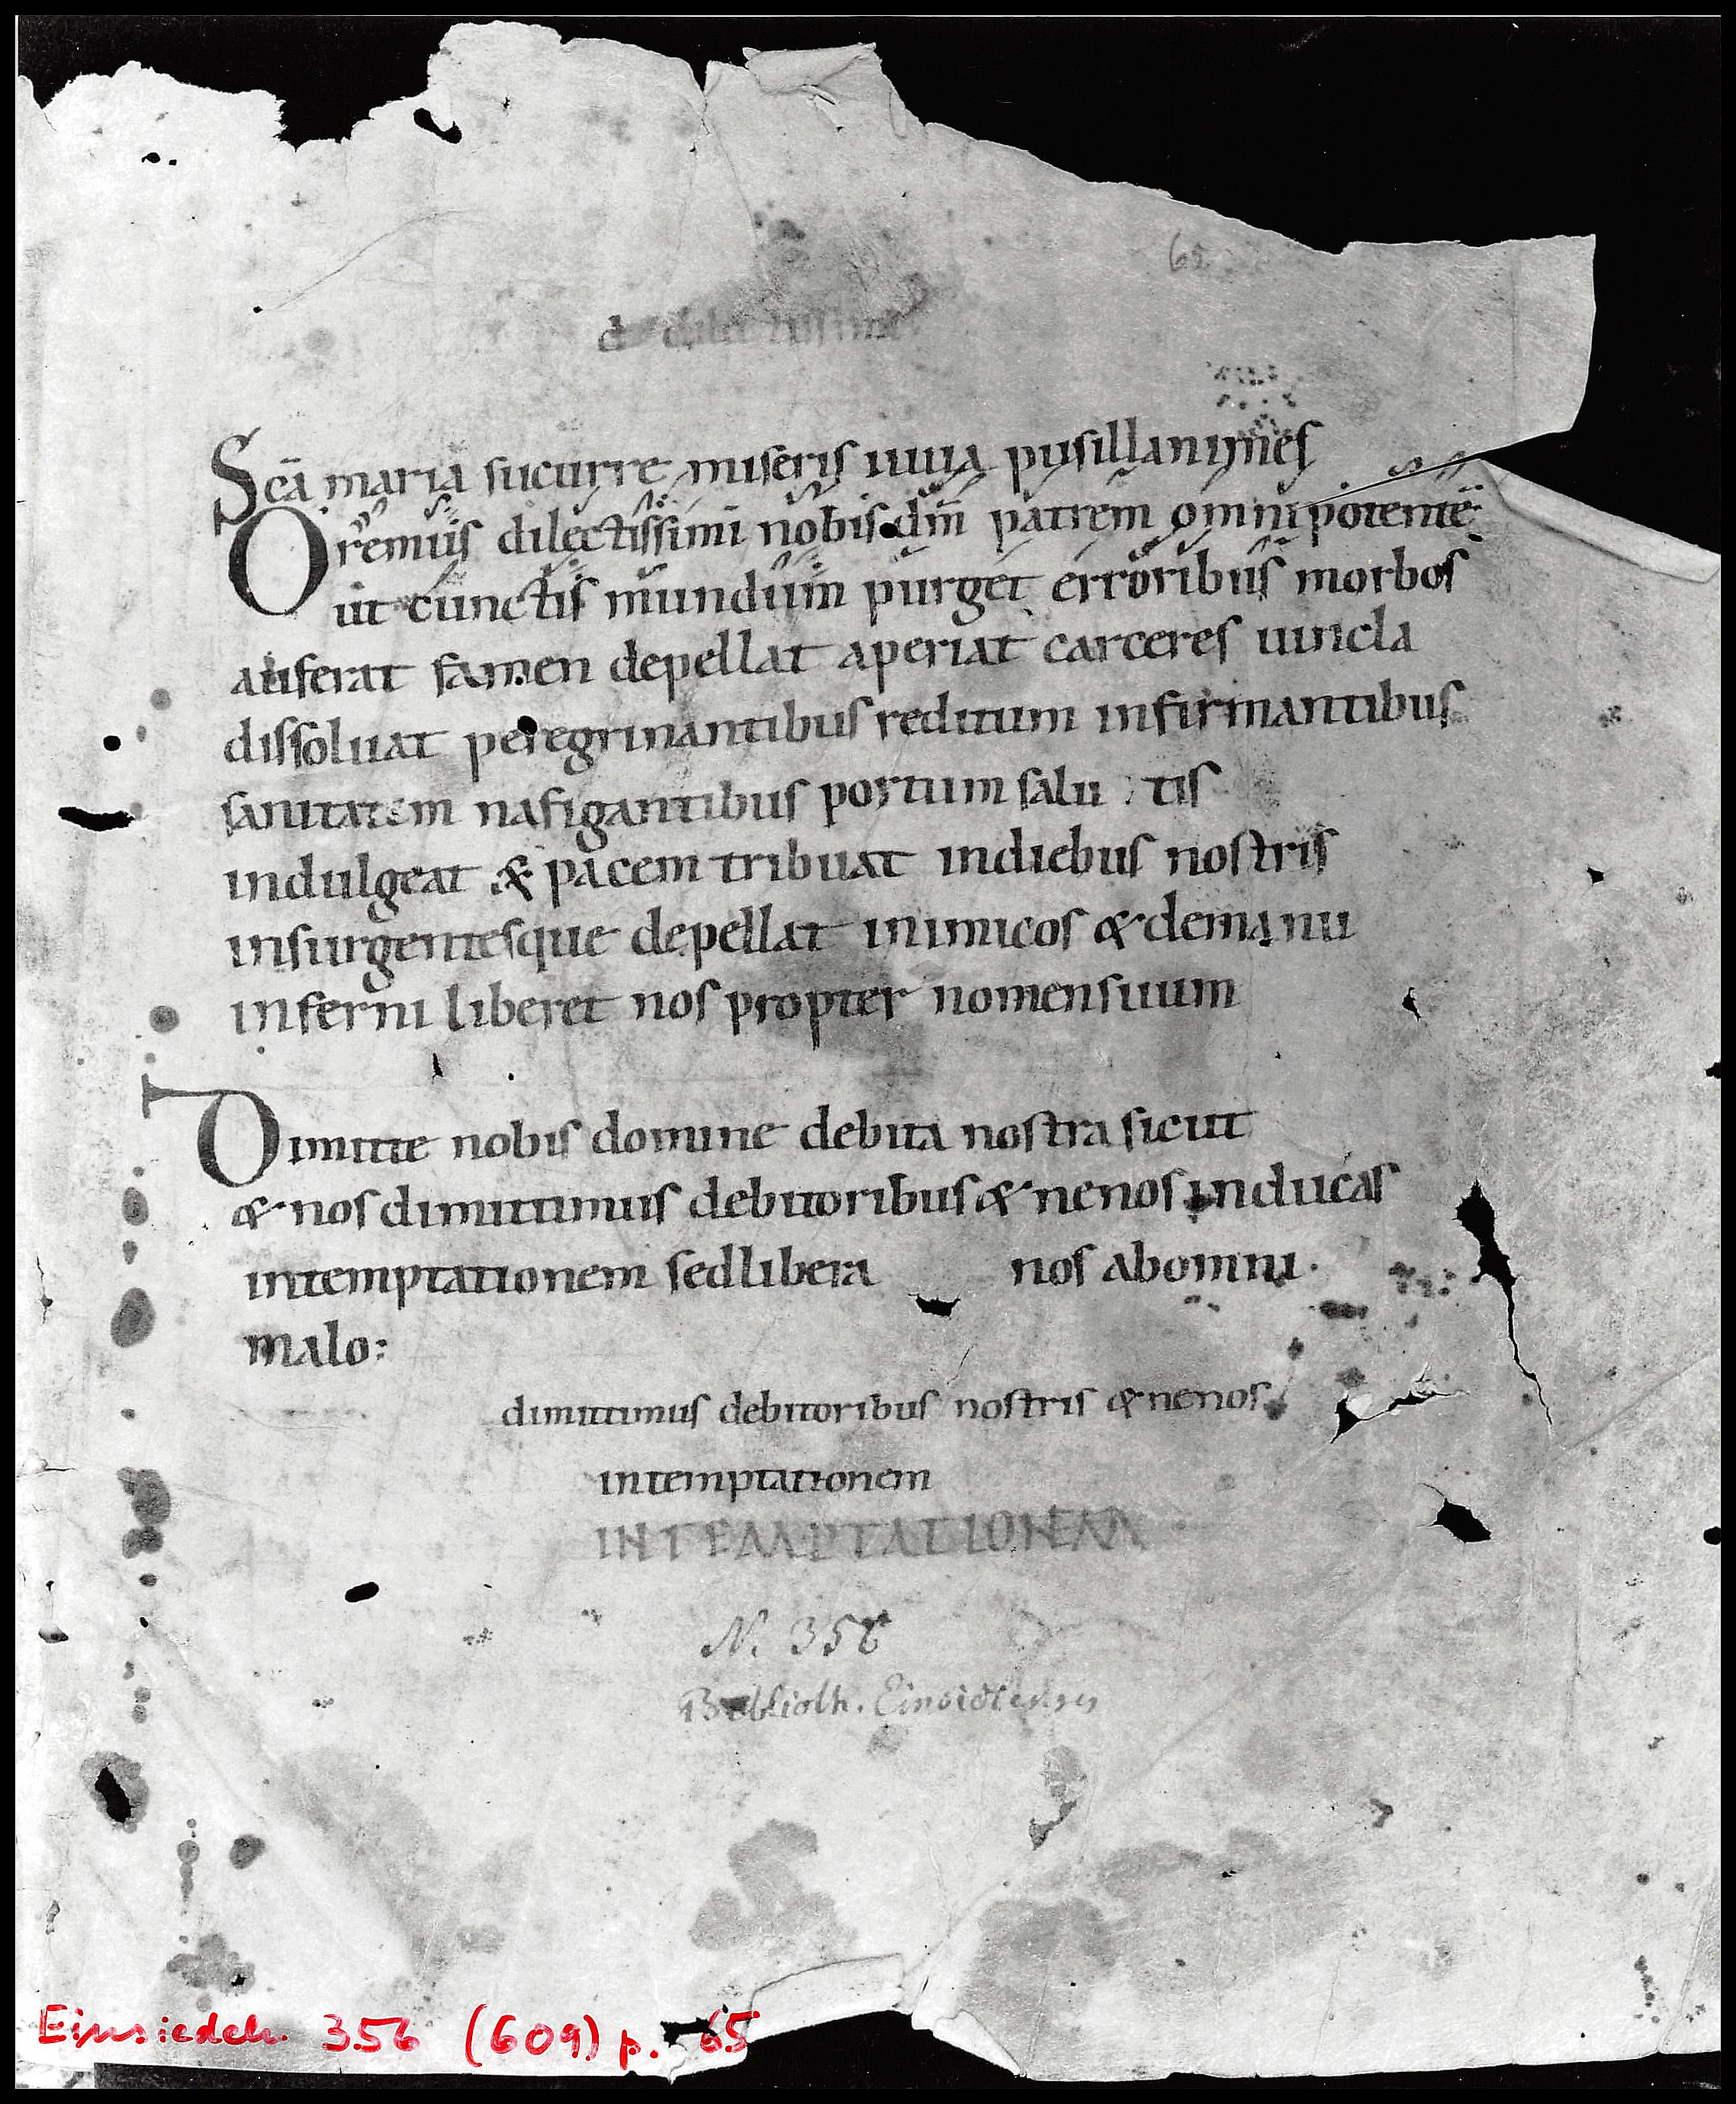 65
d dilectissime
Scā maria sucurre miseris iuua pusillanimes
Oremus dilectissimi nobis dm̄ patrem omnipotentē
ut cunctis mundum purget erroribus morbos
auferat famen depellat aperiat carceres uincla
dissoluat peregrinantibus reditum infirmantibus
sanitatem nafigantibus portum salu tis
indulgeat & pacem tribuat indiebus nostris
insurgentesque depellat inimicos & demanu
inferni liberet nos propter nomensuum
Dimitte nobis domine debita nostra sicut
& nos dimittimus debitoribus & nenos inducas
intemptationem sedlibera nos abomni
malo:
dimittimus debitoribus nostris & nenos
intemptationem
INTEMPTATIONEM
N. 356
Biblioth. Einsidlensis
Einsiedeln 356 (609) p. 65